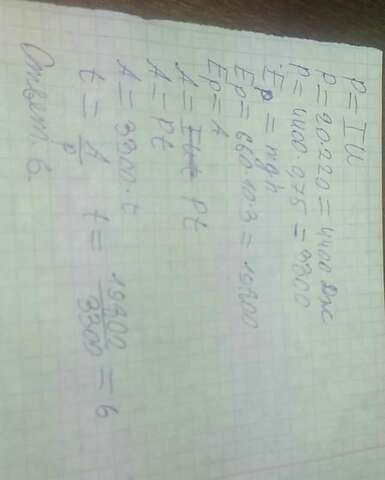 P = IU
P = 20·220 = 4400 Дж
P = 4400·0,75 = 3300
Ep = mgh
Ep = 660·10·3 = 19800
Ep = A
A = Pt
A = Pt
A = 3300·t
t = A/P t = 19800/3300 = 6
Ответ: 6.